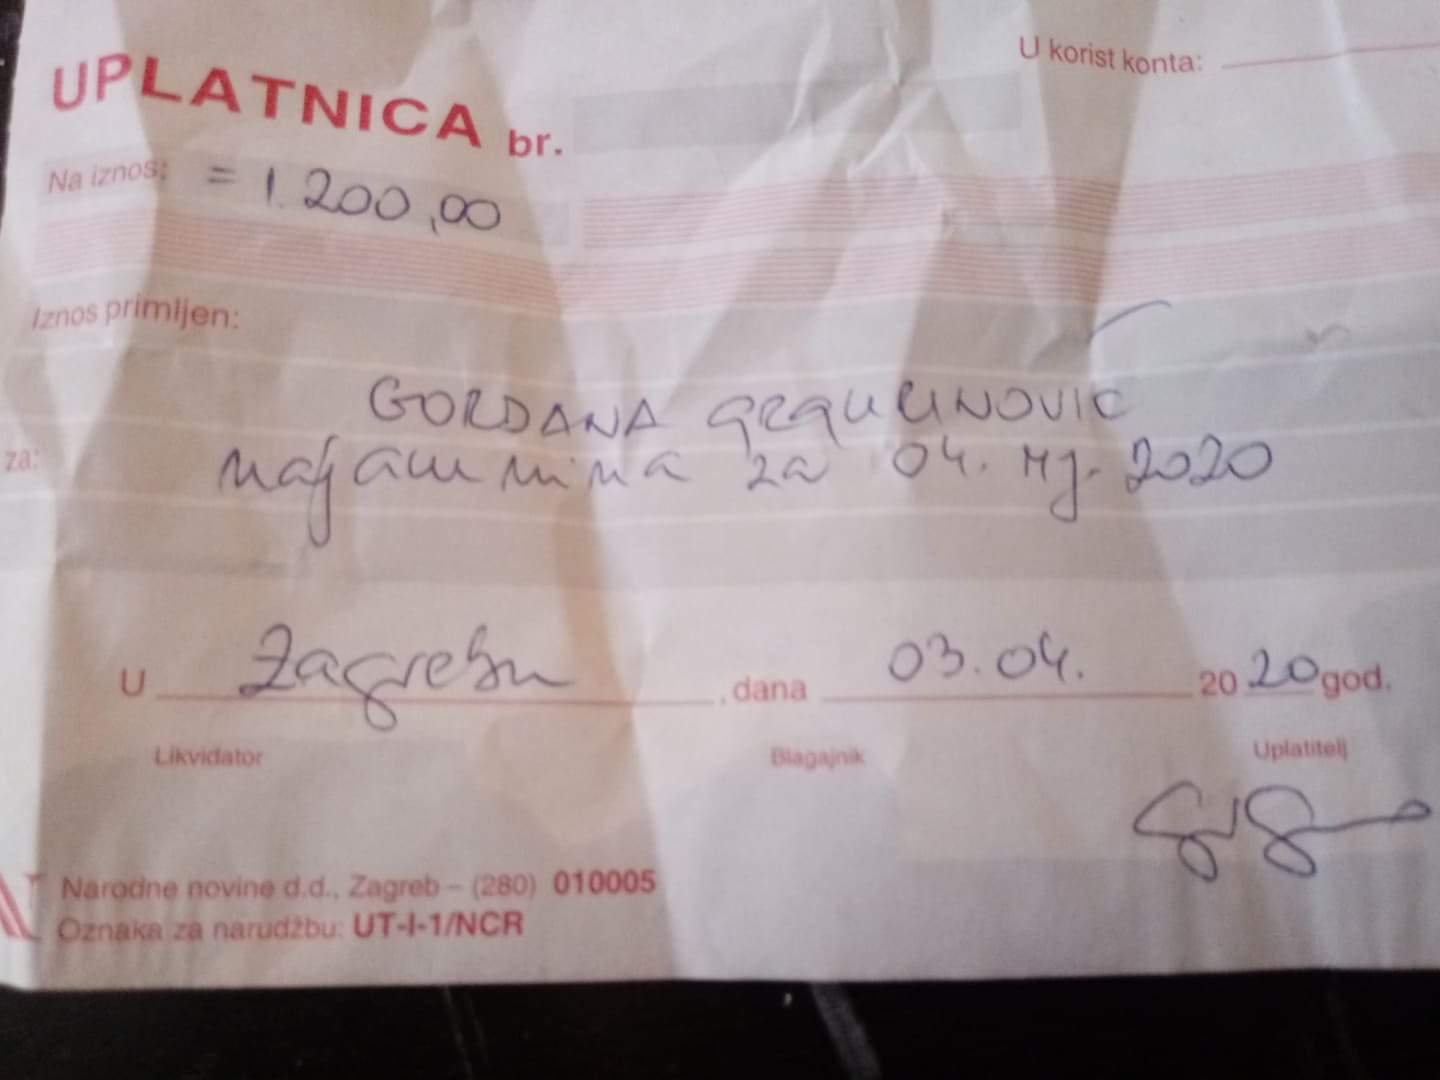 U korist konta:
UPLATNICA br.
Na iznos: = 1.200,00
Iznos primljen:
GORDANA GRGURINOVIC
za: najamnina za 04. Mj. 2020
U Zagrebu, dana 03.04. 2020 god.
Likvidator Blagajnik Uplatitelj
Narodne novine d.d., Zagreb – (280) 010005
Oznaka za narudžbu: UT-I-1/NCR